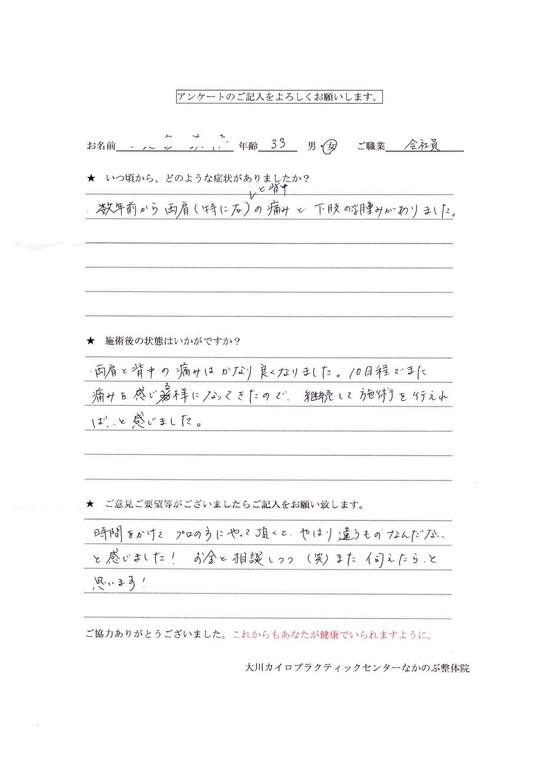 アンケートのご記入をよろしくお願いします。
お名前 年齢 33 男・女 ご職業 会社員
★ いつ頃から、どのような症状がありましたか?
と背中
・数年前から両肩(特に右)の痛みと下肢の浮腫みがありました。
★ 施術後の状態はいかがですか?
・両肩と背中の痛みはかなり良くなりました。10日程でまた
痛みを感じる様になってきたので、継続して施術を行えれ
ば…と感じました。
★ ご意見ご要望等がございましたらご記入をお願い致します。
時間をかけてプロの方にやって頂くと、やはり違うものなんだな…
と感じました! お金と相談しつつ(笑)また伺えたらと
思います!
ご協力ありがとうございました。これからもあなたが健康でいられますように。
大川カイロプラクティックセンターなかのぶ整体院